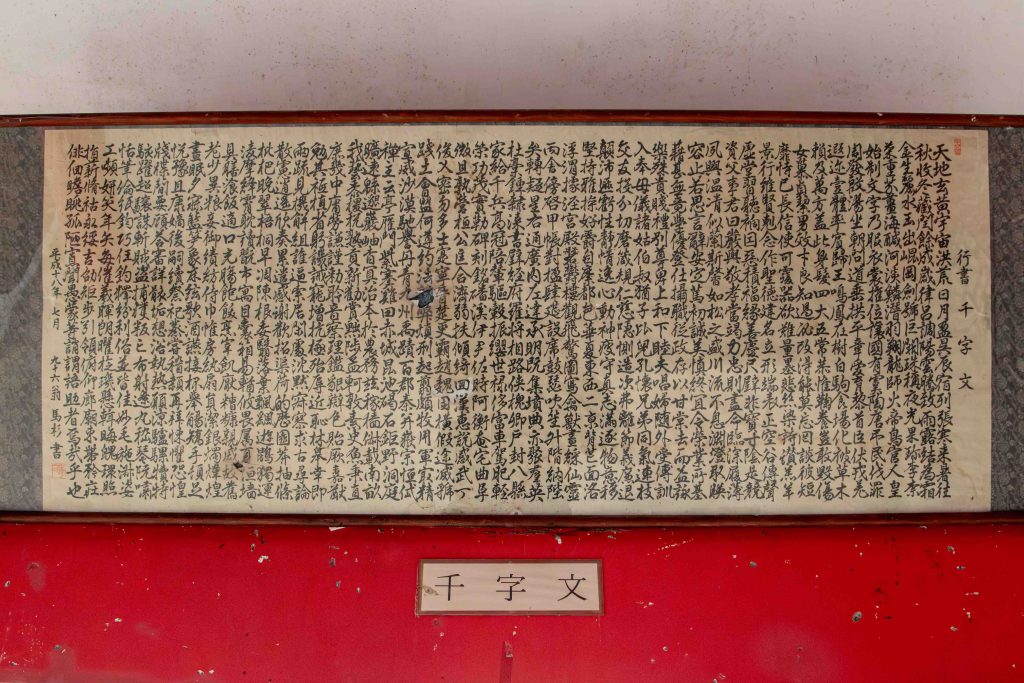 行書千字文
天地玄黄宇宙洪荒日月盈昃辰宿列張寒来暑往
秋收冬蔵閏餘成歳律呂調陽雲騰致雨露結為霜
金生麗水玉出崑岡劍號巨闕珠稱夜光果珍李柰
菜重芥薑海鹹河淡鱗潜羽翔龍師火帝鳥官人皇
始制文字乃服衣裳推位讓國有虞陶唐弔民伐罪
周發殷湯坐朝問道垂拱平章愛育黎首臣伏戎羌
遐邇壹體率賓歸王鳴鳳在樹白駒食場化被草木
賴及萬方蓋此身髮四大五常恭惟鞠養豈敢毀傷
女慕貞潔男效才良知過必改得能莫忘罔談彼短
靡恃己長信使可覆器欲難量墨悲絲染詩讃羔羊
景行維賢剋念作聖德建名立形端表正空谷傳聲
虚堂習聽禍因惡積福縁善慶尺璧非寶寸陰是競
資父事君曰嚴與敬孝當竭力忠則盡命臨深履薄
夙興温凊似蘭斯馨如松之盛川流不息淵澄取映
容止若思言辭安定篤初誠美慎終宜令榮業所基
籍甚無竟學優登仕攝職從政存以甘棠去而益詠
樂殊貴賤禮別尊卑上和下睦夫唱婦隨外受傅訓
入奉母儀諸姑伯叔猶子比兒孔懐兄弟同氣連枝
交友投分切磨箴規仁慈隠惻造次弗離節義廉退
顛沛匪虧性静情逸心動神疲守真志満逐物意移
堅持雅操好爵自縻都邑華夏東西二京背芒面洛
浮渭據涇宮殿盤欝樓觀飛驚圖寫禽獸畫綵仙靈
丙舎傍啓甲帳對楹肆筵設席鼓瑟吹笙升階納陛
弁轉疑星右通廣内左達承明既集墳典亦聚群英
杜稾鍾隷漆書壁經府羅將相路俠槐卿戸封八縣
家給千兵高冠陪輦驅轂振纓世祿侈富車駕肥輕
策功茂實勒碑刻銘磻溪伊尹佐時阿衡奄宅曲阜
微旦孰營桓公匡合濟弱扶傾綺回漢惠説感武丁
俊乂密勿多士寔寧晉楚更覇趙魏困横假途滅虢
踐土會盟何遵約法韓弊煩刑起翦頗牧用軍最精
宣威沙漠馳譽丹青九州禹跡百郡秦并嶽宗恒岱
禪主云亭雁門紫塞雞田赤城昆池碣石鉅野洞庭
曠遠綿邈巖岫杳冥治本於農務茲稼穡俶載南畝
我藝黍稷税熟貢新勸賞黜陟孟軻敦素史魚秉直
庶幾中庸勞謙謹勅聆音察理鑑貌辯色貽厥嘉猷
勉其祗植省躬譏誡寵増抗極殆辱近恥林皋幸即
兩疏見機解組誰逼索居閑處沈黙寂寥求古尋論
散慮逍遥欣奏累遣慼謝歡招渠荷的歴園莽抽條
枇杷晩翠梧桐早凋陳根委翳落葉飄颻遊鵾獨運
凌摩絳霄耽讀翫市寓目嚢箱易輶攸畏屬耳垣牆
具膳飡飯適口充腸飽飫烹宰飢厭糟糠親戚故舊
老少異粮妾御績紡侍巾帷房紈扇圓潔銀燭煒煌
晝眠夕寐藍筍象床絃歌酒讌接杯舉觴矯手頓足
悦豫且康嫡後嗣續祭祀蒸嘗稽顙再拜悚懼恐惶
牋牒簡要顧答審詳骸垢想浴執熱願涼驢騾犢特
駭躍超驤誅斬賊盗捕獲叛亡布射遼丸嵇琴阮嘯
恬筆倫紙鈞巧任釣釋紛利俗並皆佳妙毛施淑姿
工嚬妍笑年矢毎催羲暉朗曜琁璣懸斡晦魄環照
指薪脩祜永綏吉劭矩歩引領俯仰廊廟束帯矜莊
俳佪瞻眺孤陋寡聞愚蒙等誚謂語助者焉哉乎也
平成八年七月
九十六翁馬杉書
千字文